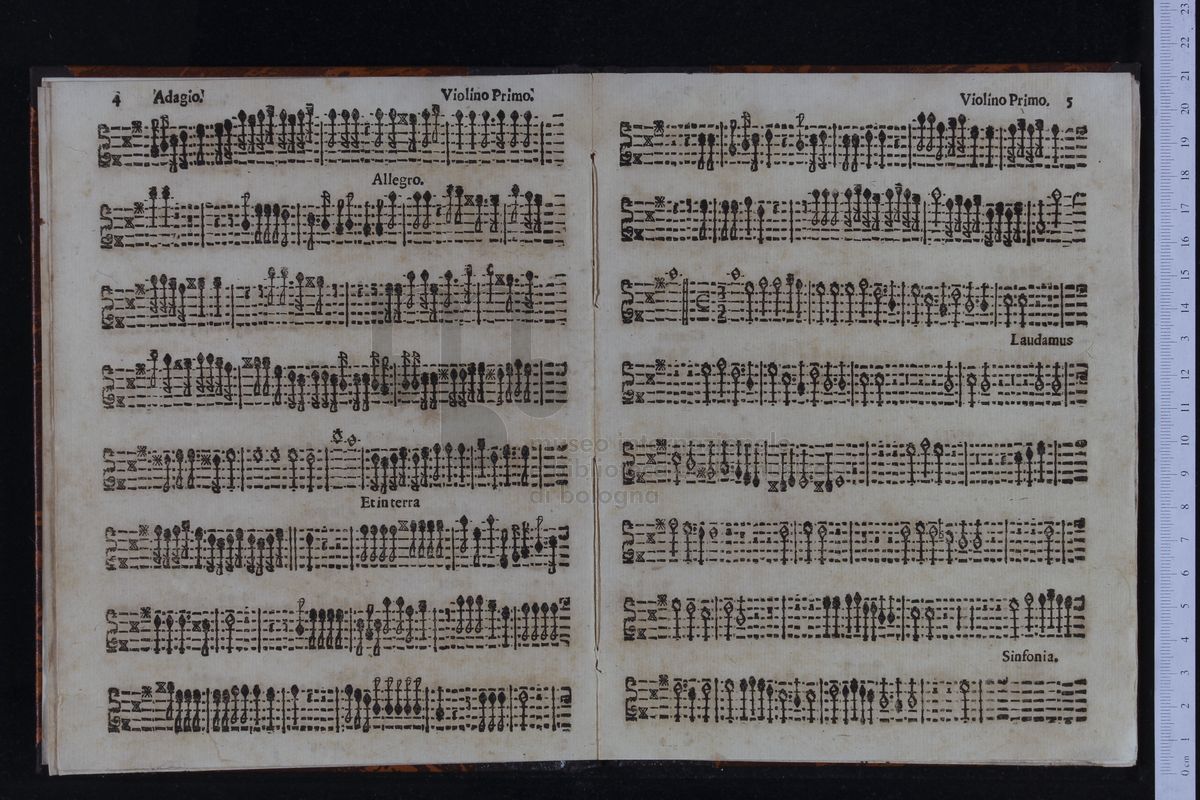 4 Adagio. Violino Primo.
Allegro.
Et in terra
Violino Primo. 5
Laudamus
Sinfonia.
museo internazionale
di bologna
0 cm 1 2 3 4 5 6 7 8 9 10 11 12 13 14 15 16 17 18 19 20 21 22 23